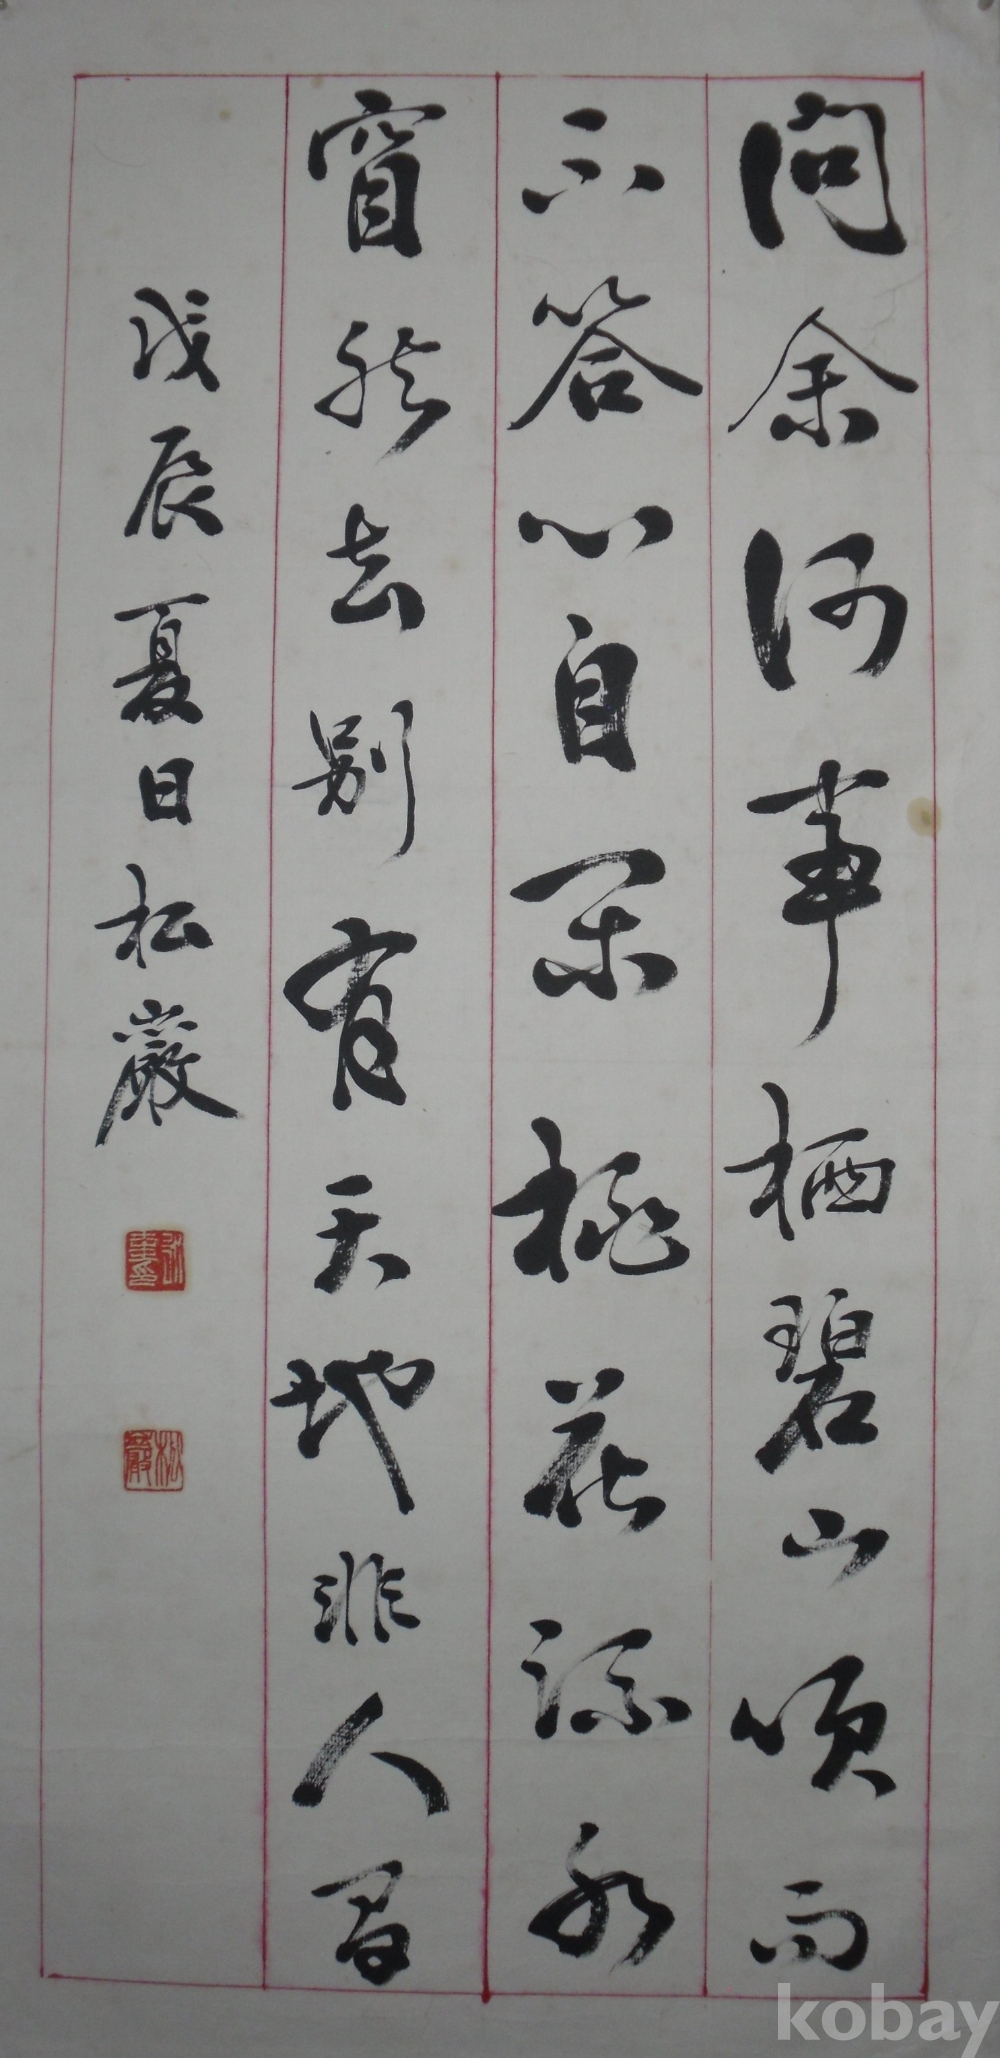 問余何事栖碧山㗛而
不答心自閑桃花流水
窅然去別有天地非人間
戊辰夏日松巖
松巖
kobay